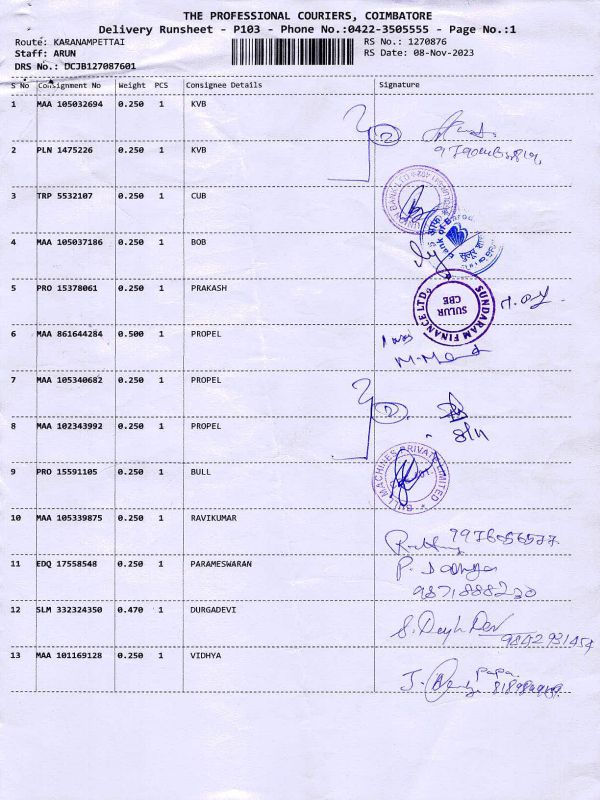 THE PROFESSIONAL COURIERS, COIMBATORE
Delivery Runsheet - P103 - Phone No.:0422-3505555 - Page No.:1
Route: KARANAMPETTAI RS No.: 1270876
Staff: ARUN RS Date: 08-Nov-2023
DRS No.: DCJB127087601
S No Consignment No Weight PCS Consignee Details Signature
1 MAA 105032694 0.250 1 KVB
2
2 PLN 1475226 0.250 1 KVB
3 TRP 5532107 0.250 1 CUB
4 MAA 105037186 0.250 1 BOB
5 PRO 15378061 0.250 1 PRAKASH
SUNDARAM FINANCE LTD.
SULUR
CBE
6 MAA 861644284 0.500 1 PROPEL
7 MAA 105340682 0.250 1 PROPEL
2
8 MAA 102343992 0.250 1 PROPEL
8/11
9 PRO 15591105 0.250 1 BULL
BULL MACHINES PRIVATE LIMITED
10 MAA 105339875 0.250 1 RAVIKUMAR
11 EDQ 17558548 0.250 1 PARAMESWARAN
9871888220
12 SLM 332324350 0.470 1 DURGADEVI
9842931454
13 MAA 101169128 0.250 1 VIDHYA
papa